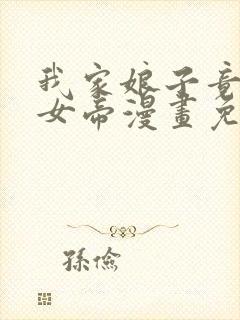 我家娘子竟
女帝漫畫免
孫儉